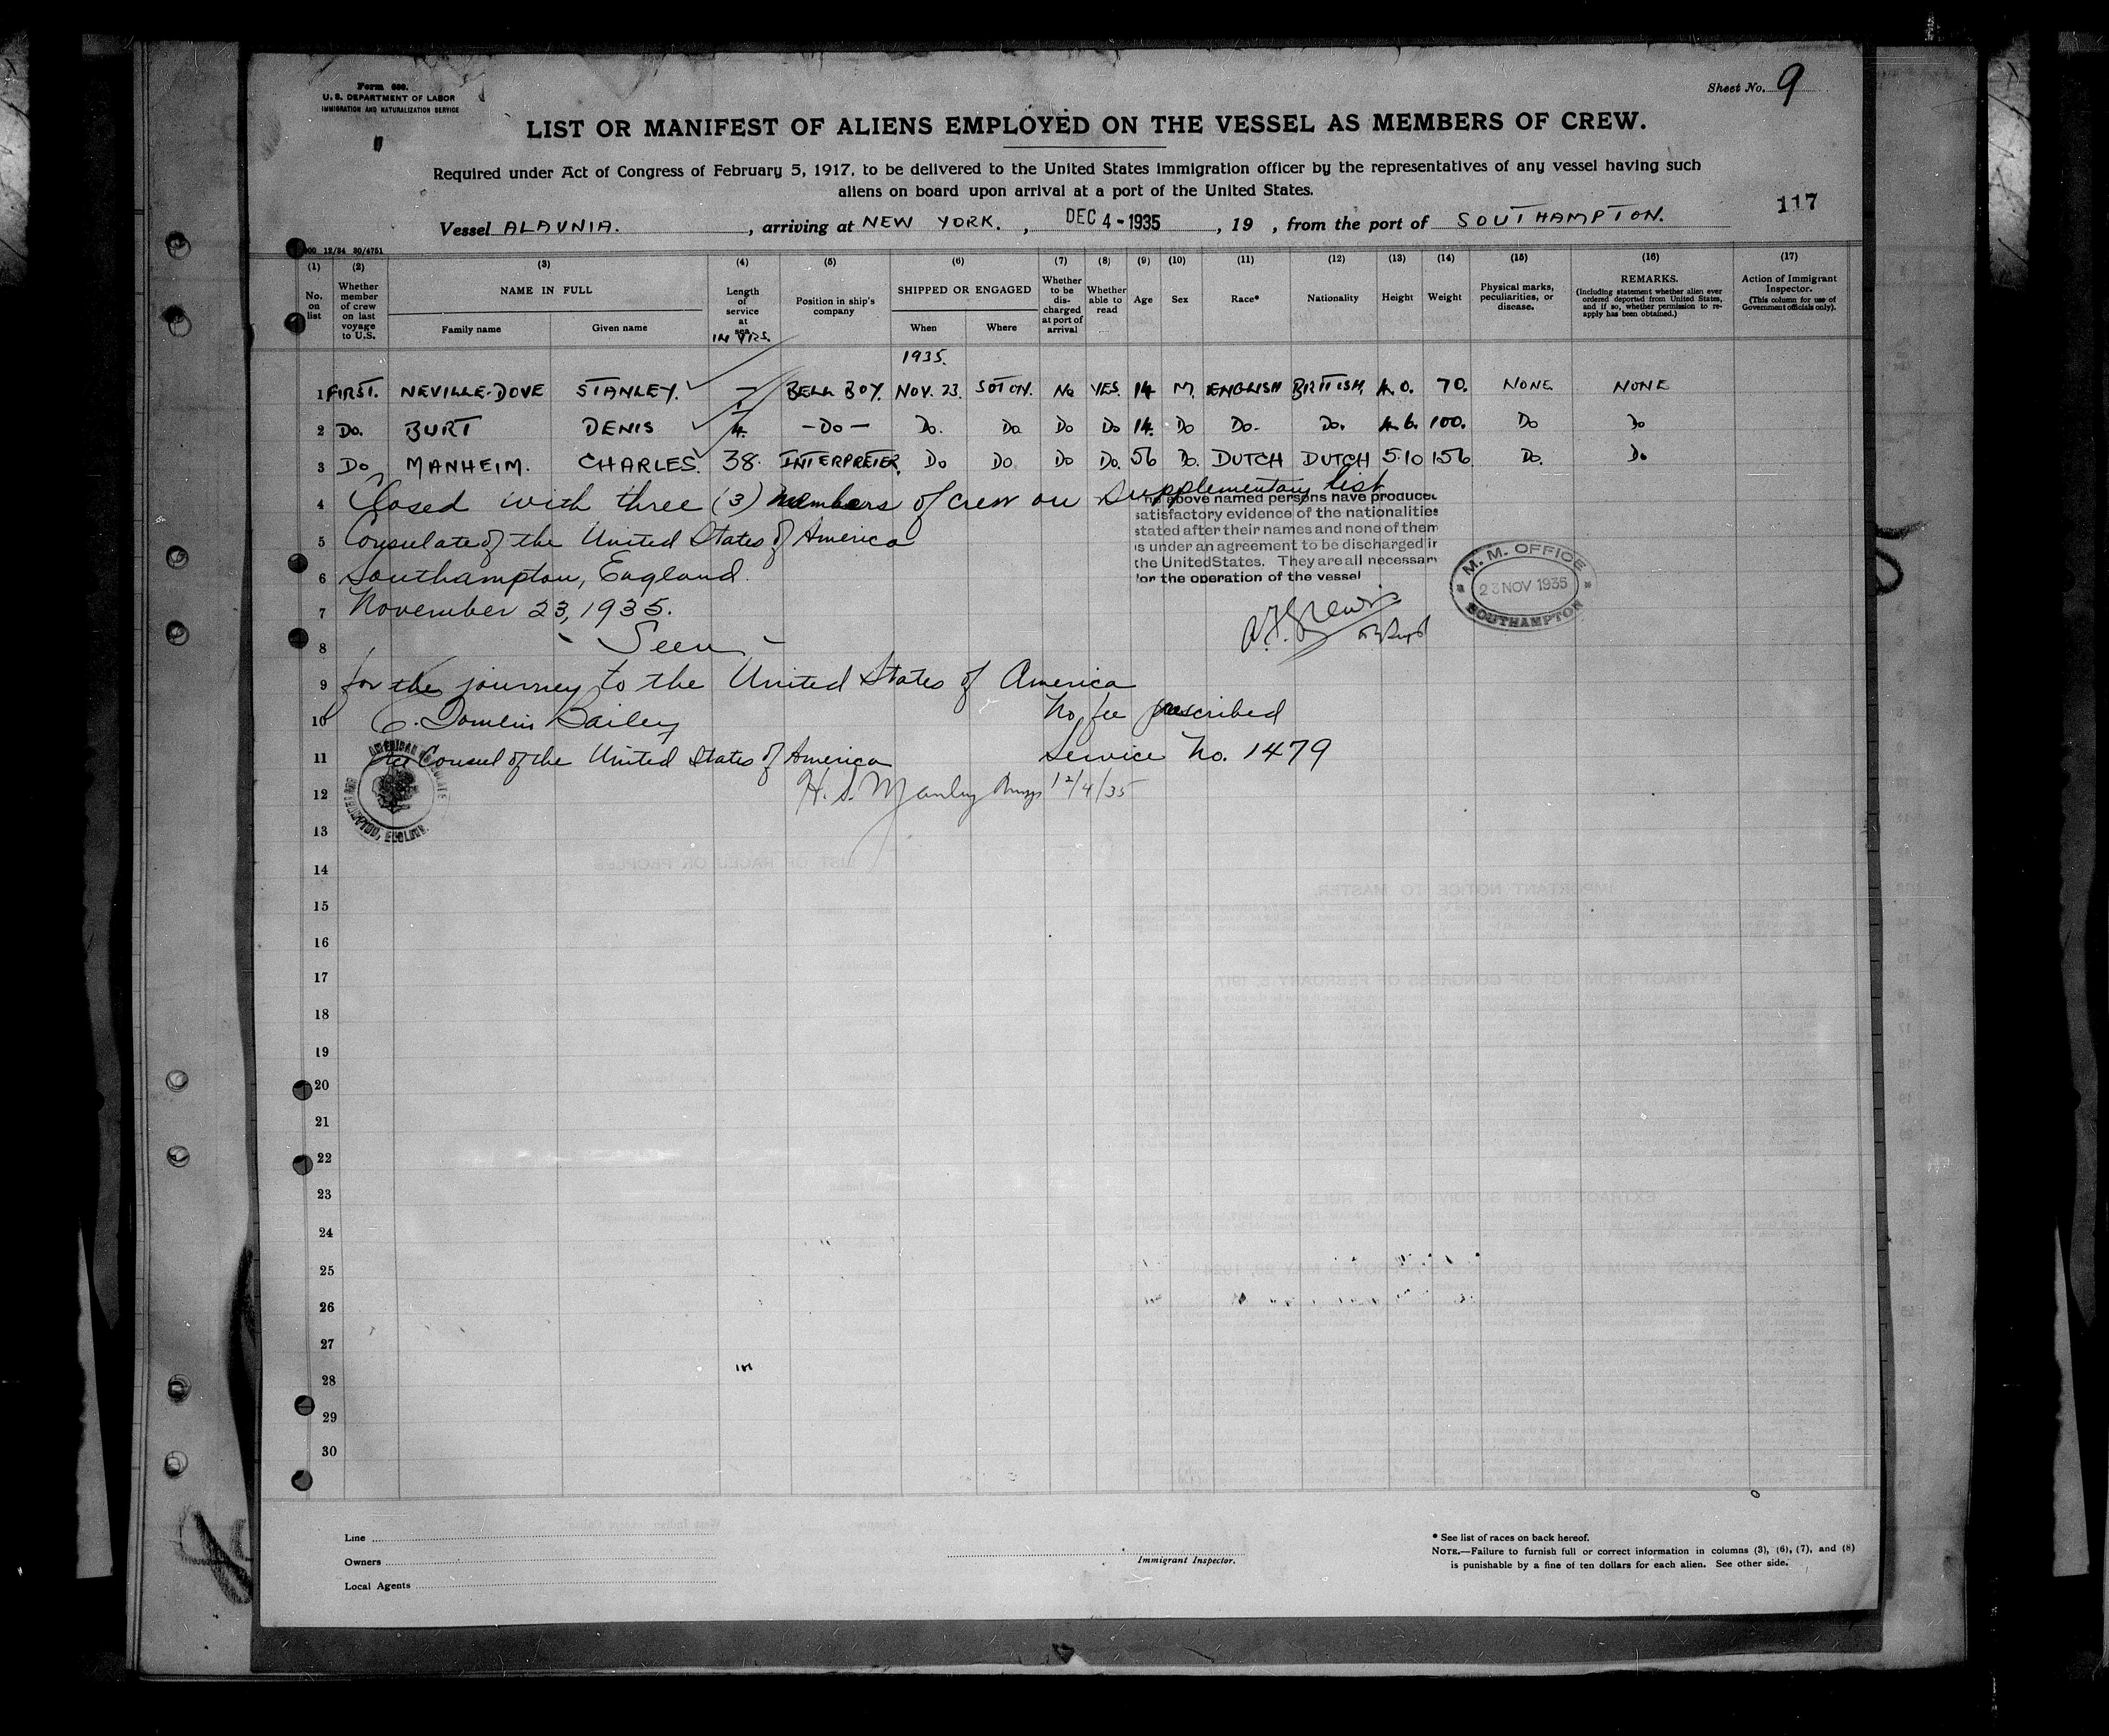 Form 680.
U. S. DEPARTMENT OF LABOR
IMMIGRATION AND NATURALIZATION SERVICE
Sheet No. 9
LIST OR MANIFEST OF ALIENS EMPLOYED ON THE VESSEL AS MEMBERS OF CREW.
Required under Act of Congress of February 5, 1917, to be delivered to the United States immigration officer by the representatives of any vessel having such
aliens on board upon arrival at a port of the United States.
117
Vessel ALAUNIA. , arriving at NEW YORK. , DEC 4 - 1935 , 19 , from the port of SOUTHAMPTON.
12/34 30/4751
(1) (2) (3) (4) (5) (6) (7) (8) (9) (10) (11) (12) (13) (14) (15) (16) (17)
No. on list
Whether member of crew on last voyage to U.S.
NAME IN FULL
Family name
Given name
Length of service at sea
IN YRS.
Position in ship's company
SHIPPED OR ENGAGED
When
Where
Whether to be discharged at port of arrival
Whether able to read
Age
Sex
Race*
Nationality
Height
Weight
Physical marks, peculiarities, or disease.
REMARKS.
(Including statement whether alien ever ordered deported from United States, and if so, whether permission to reapply has been obtained.)
Action of Immigrant Inspector.
(This column for use of Government officials only).
1935.
1 FIRST. NEVILLE-DOVE STANLEY. — BELL BOY. NOV. 23. SOTON. No YES. 14 M. ENGLISH BRITISH. 4.0. 70. NONE NONE
2 Do. BURT DENIS — Do — Do. Do Do Do 14. Do Do. Do. 4.6. 100. Do Do
3 Do MANHEIM. CHARLES. 38. INTERPRETER. Do Do. Do Do. 56 Do. DUTCH DUTCH 5.10 156 Do. Do
4 Closed with three (3) members of crew on supplementary list
5 Consulate of the United States of America
6 Southampton, England.
7 November 23, 1935.
8 - Seen -
above named persons have produced
satisfactory evidence of the nationalities
stated after their names and none of them
is under an agreement to be discharged in
the United States. They are all necessary
for the operation of the vessel
M. M. OFFICE
23 NOV 1935
SOUTHAMPTON
9 for the journey to the United States of America
10 C. Bailey No fee prescribed
11 Vice Consul of the United States of America Service No. 1479
12 H. S. Manley 12/4/35
AMERICAN CONSULATE
SOUTHAMPTON, ENGLAND.
13
14
15
16
17
18
19
20
21
22
23
24
25
26
27
28
29
30
Line
Owners
Local Agents
Immigrant Inspector.
* See list of races on back hereof.
NOTE.—Failure to furnish full or correct information in columns (3), (6), (7), and (8)
is punishable by a fine of ten dollars for each alien. See other side.